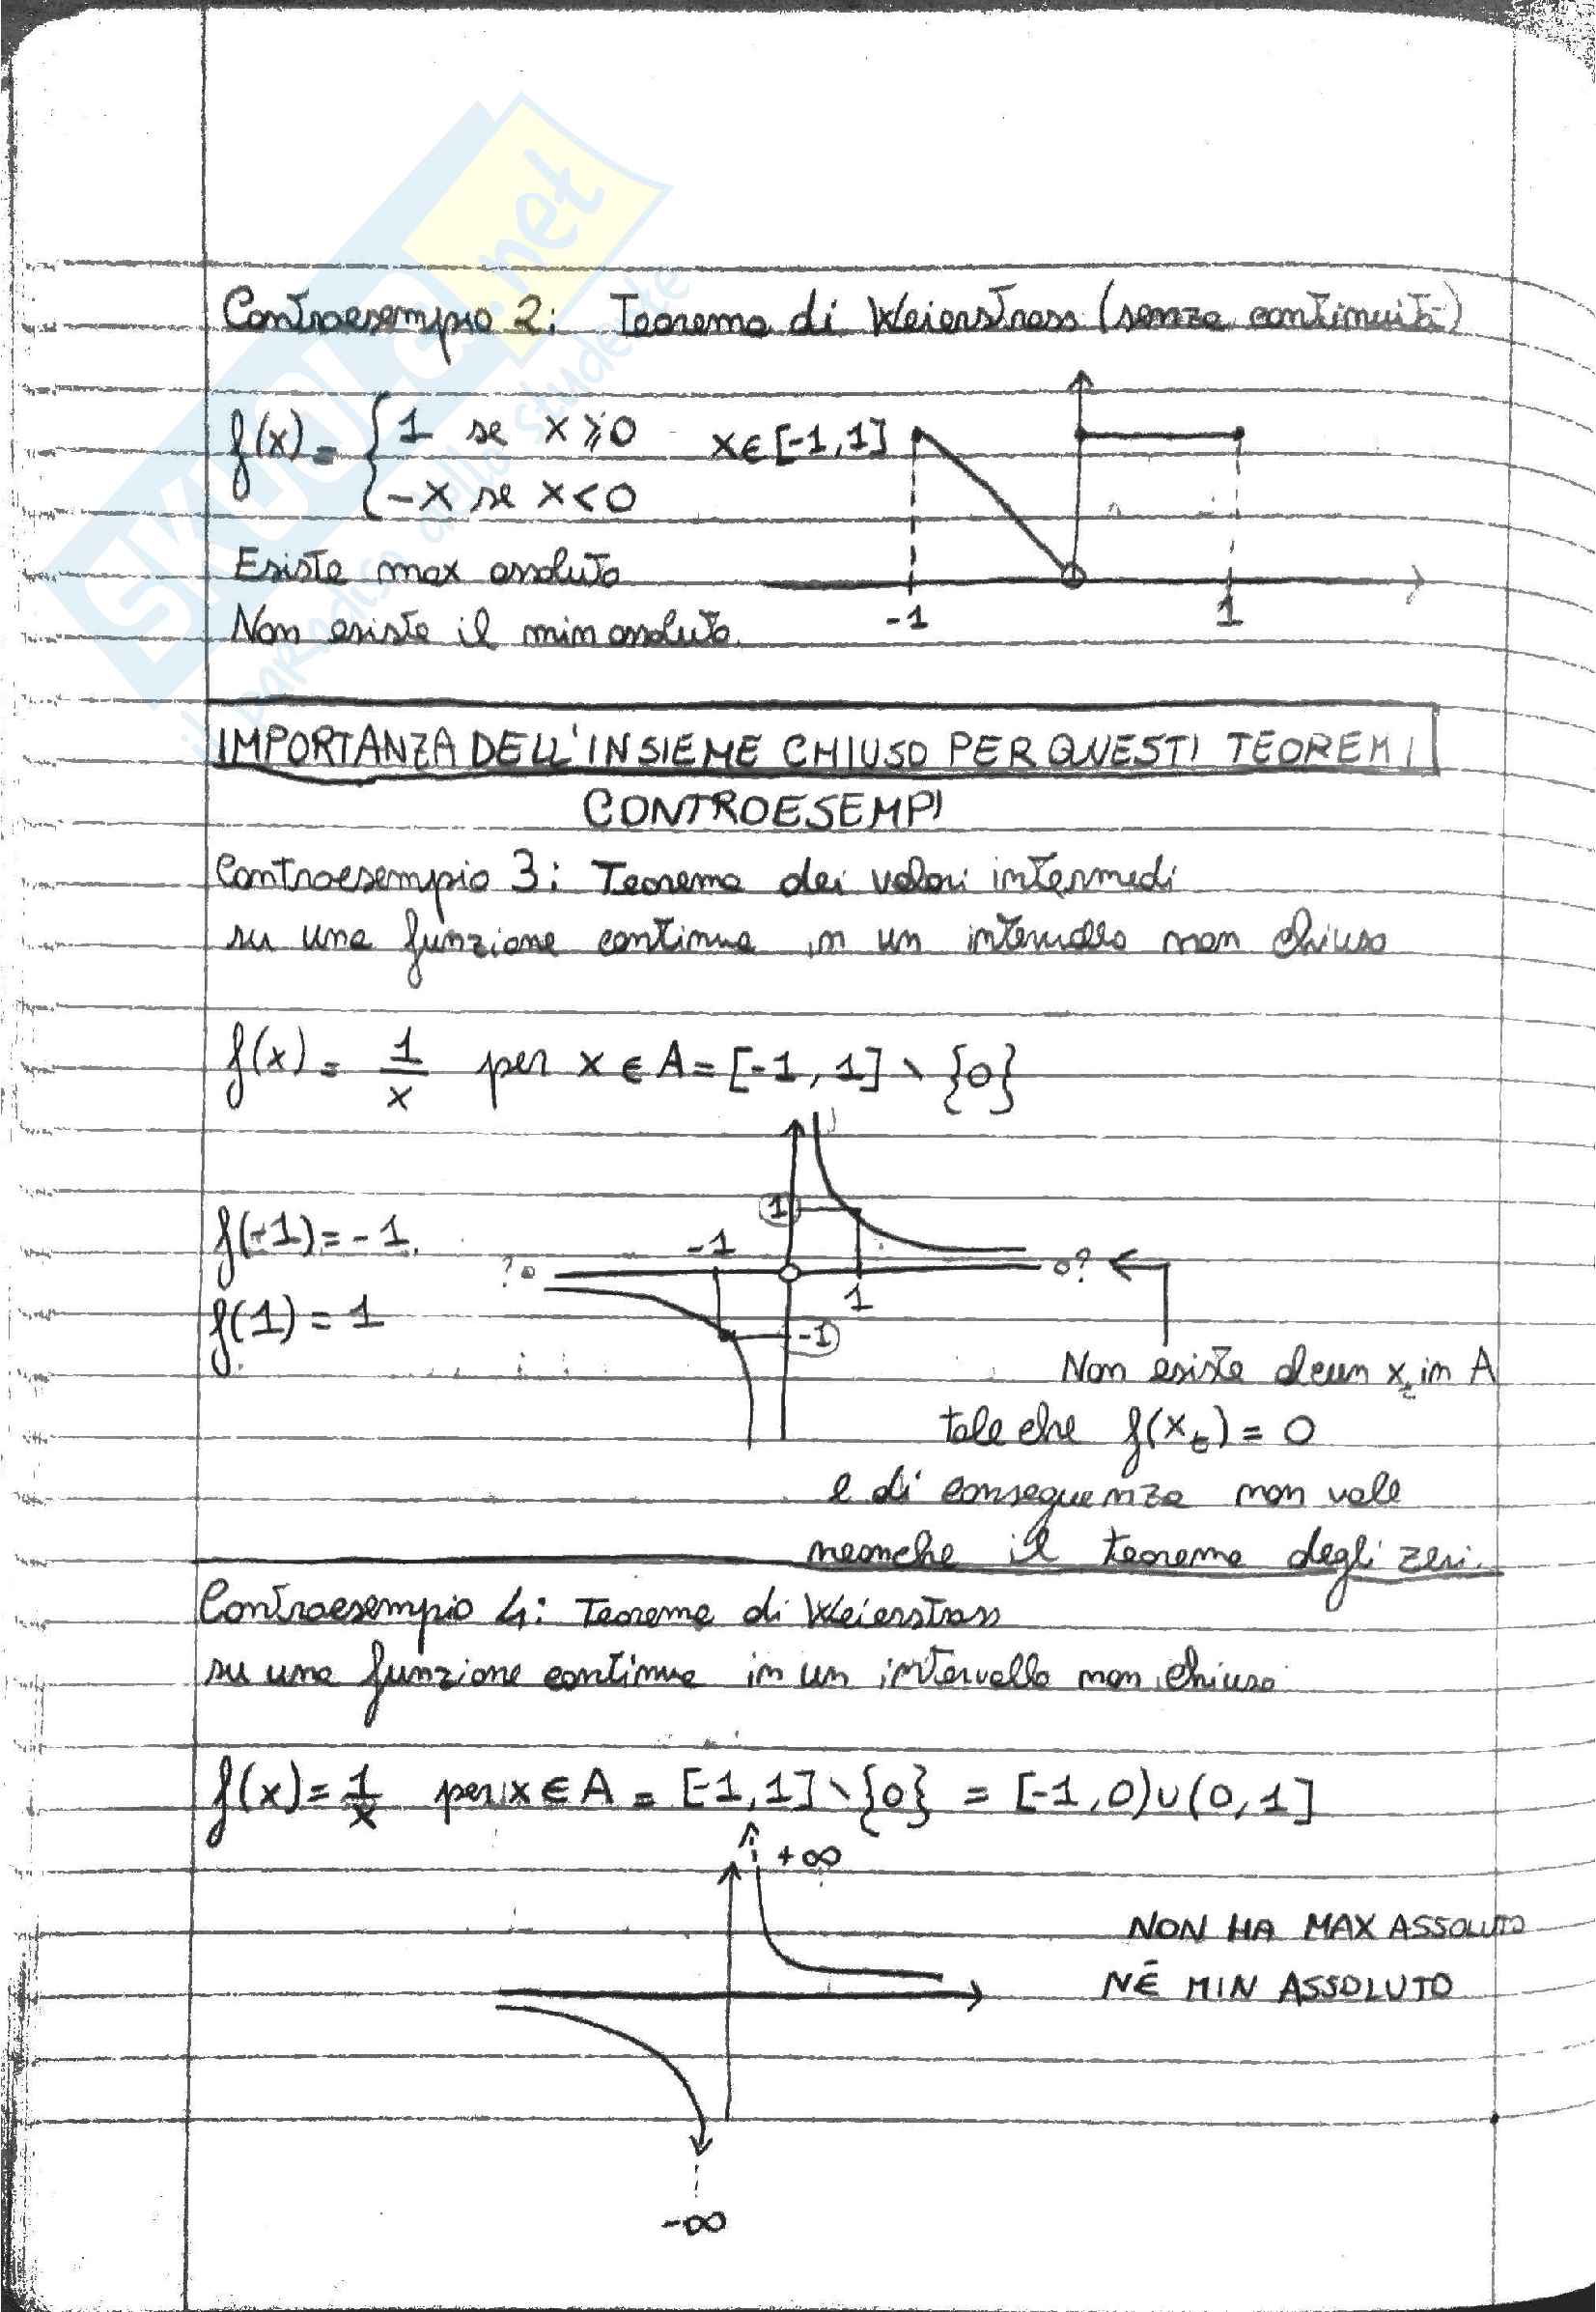 Controesempio 2: Teorema di Weierstrass (senza continuità)
f(x) = { 1 se x ⩾ 0 x ∈ [-1, 1]
-x se x < 0
Esiste max assoluto
Non esiste il min assoluto.
-1 1
IMPORTANZA DELL'INSIEME CHIUSO PER QUESTI TEOREMI
CONTROESEMPI
Controesempio 3: Teorema dei valori intermedi
su una funzione continua in un intervallo non chiuso
f(x) = 1/x per x ∈ A = [-1, 1] \ {0}
f(-1) = -1.
f(1) = 1
1
-1
?o o?
1
-1
Non esiste alcun x_t in A
tale che f(x_t) = 0
e di conseguenza non vale
neanche il teorema degli zeri.
Controesempio 4: Teorema di Weierstrass
su una funzione continua in un intervallo non chiuso
f(x) = 1/x per x ∈ A = [-1, 1] \ {0} = [-1, 0) ∪ (0, 1]
+∞
NON HA MAX ASSOLUTO
NÉ MIN ASSOLUTO
-∞
SKUOLA.net
il paradiso dello studente